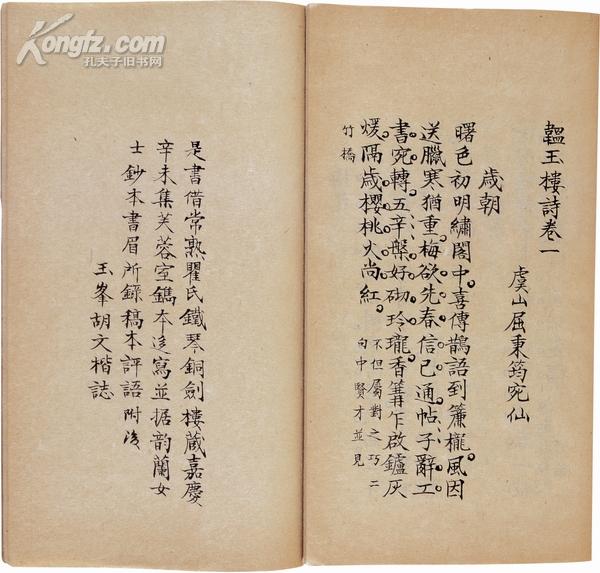 Kongfz.com
孔夫子旧书网
韞玉樓詩卷一
虞山屈秉筠宛仙
歲朝
曙色初明繡閣中喜傳鵲語到簾櫳風因
送臘寒猶重梅欲先春信已通帖子辭工
書宛轉五辛槃好砌玲瓏香篝乍啟鑪灰
煖隔歲櫻桃火尚紅
不但屬對之巧二
句中賢才並見
竹橋
是書借常熟瞿氏鐵琴銅劍樓藏嘉慶
辛未集芙蓉室鐫本迻寫並据韵蘭女
士鈔本書眉所錄稿本評語附後
玉峯胡文楷誌